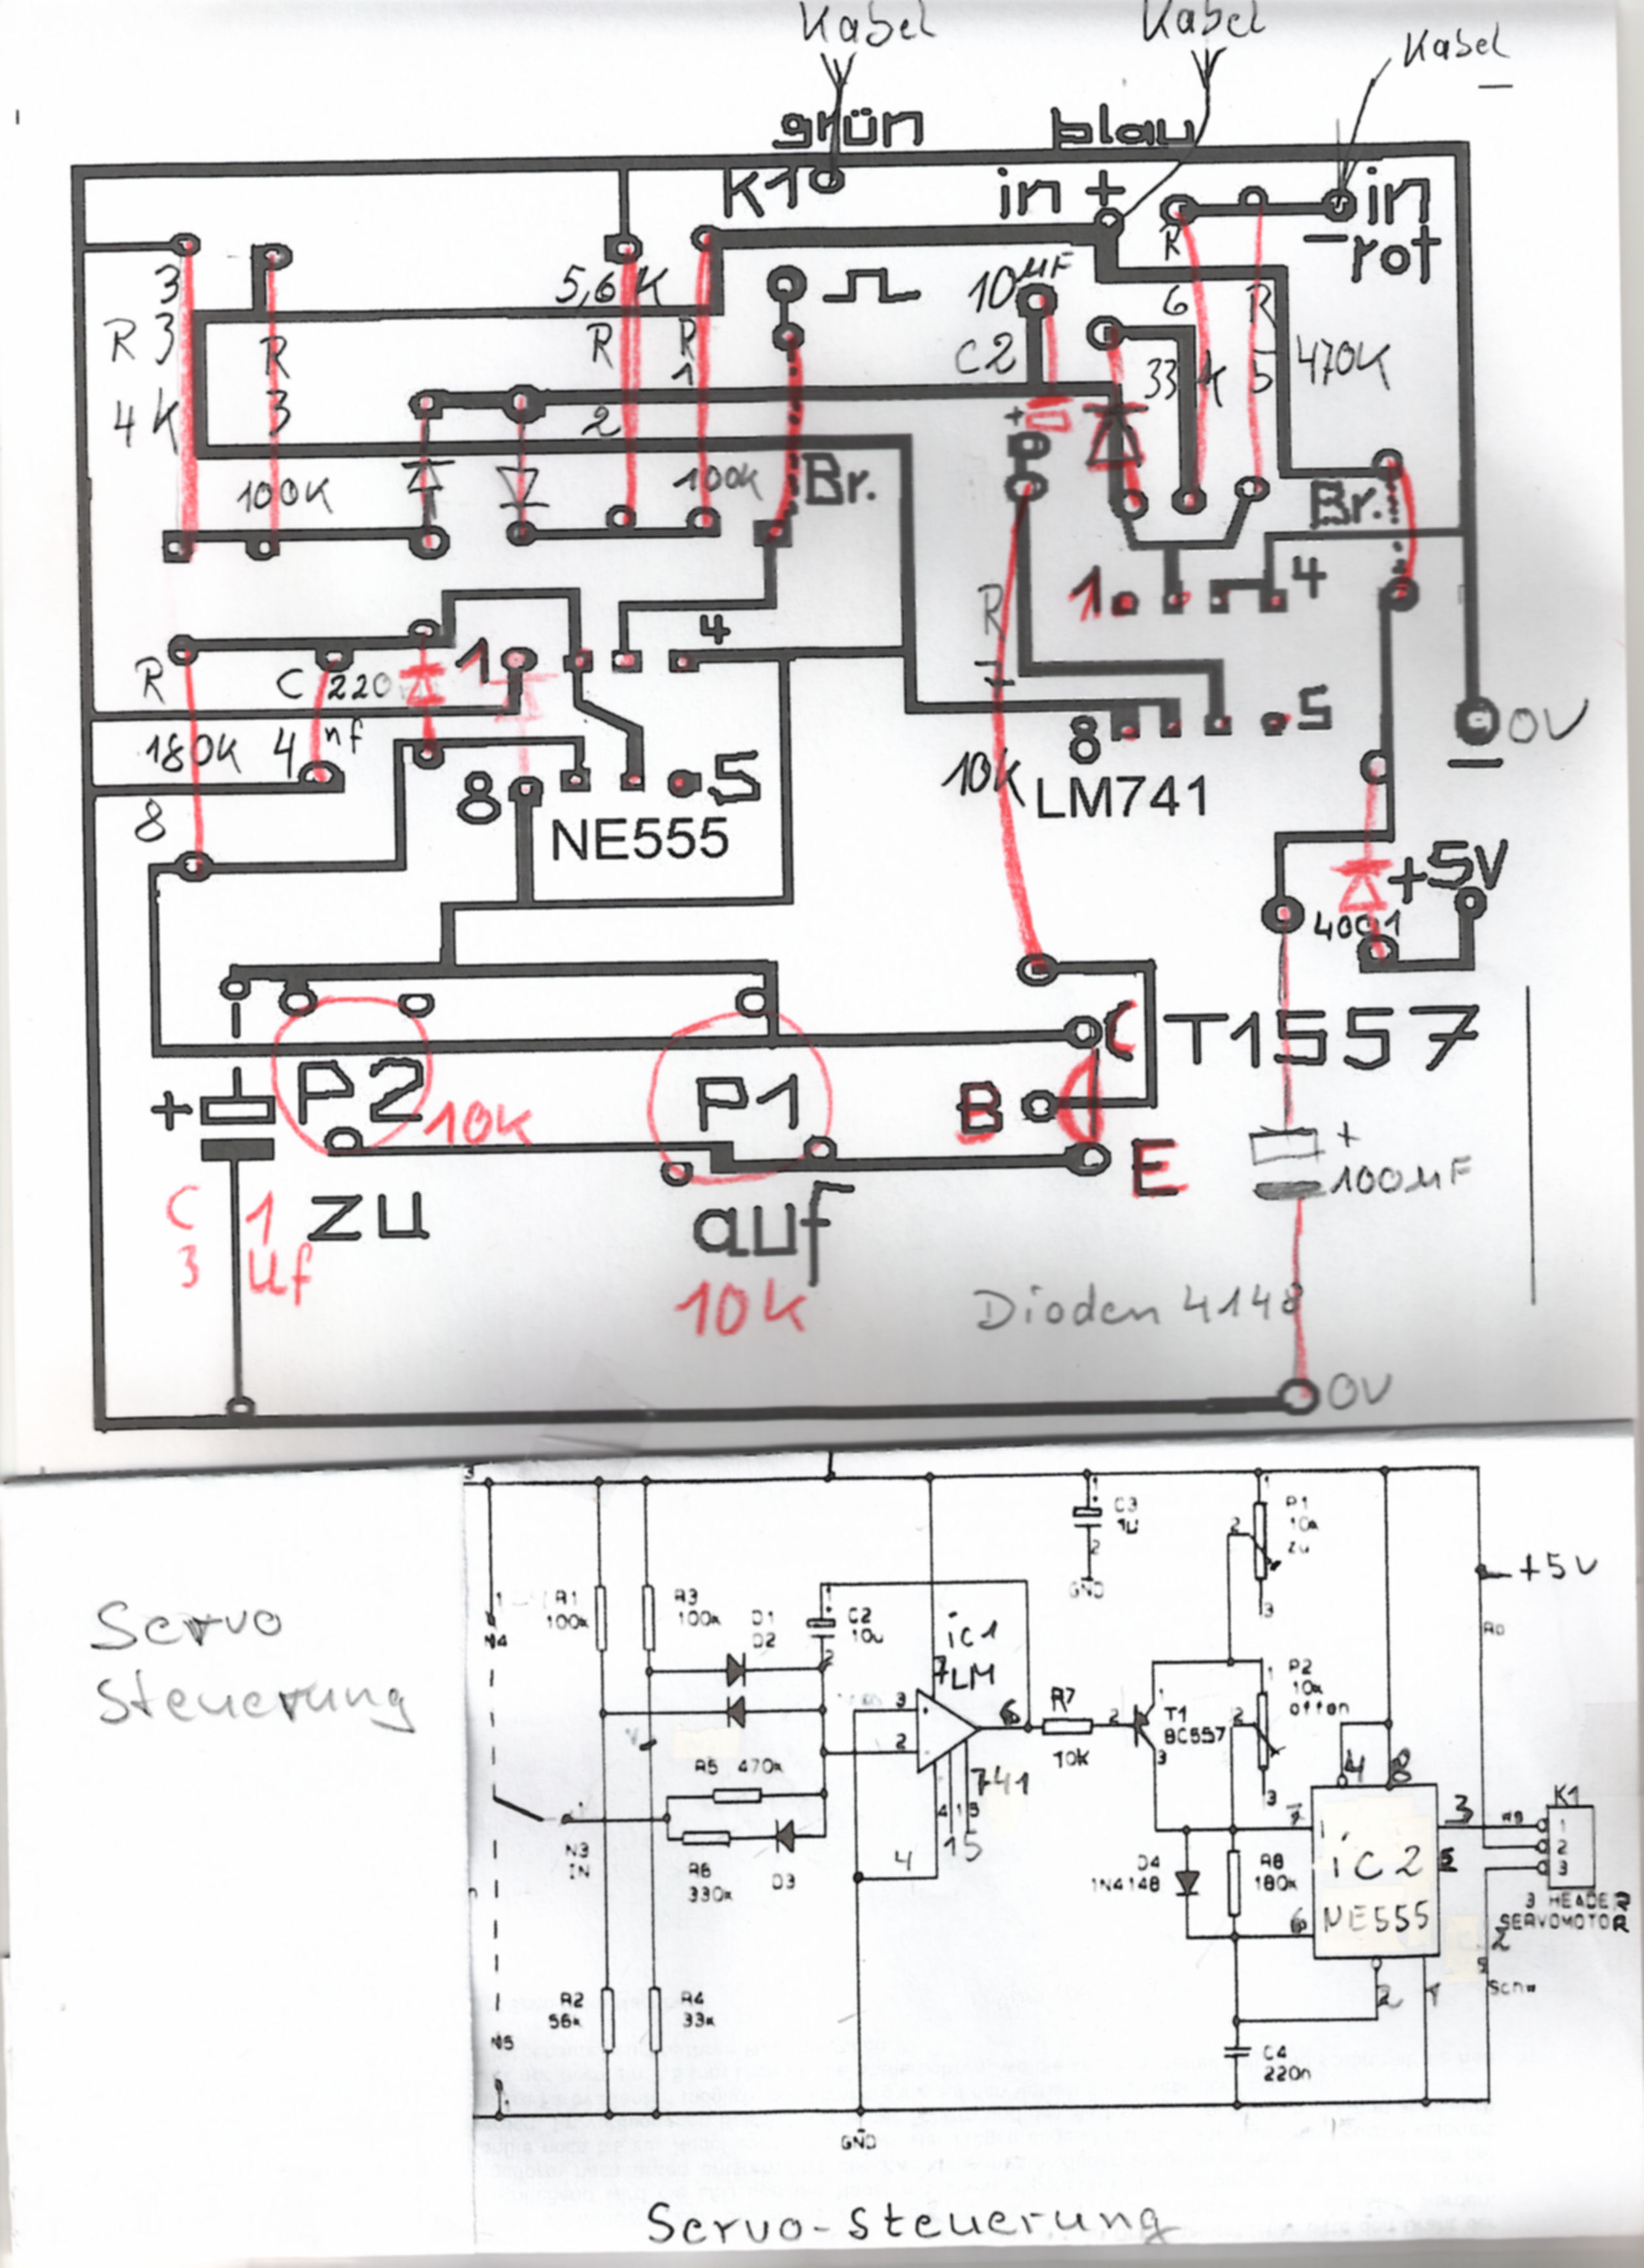 Kabel
Kabel
Kabel
grün
blau
K1
in +
in
- rot
3
R 3
4K
R
3
100K
5,6K
R
2
R
1
100k
Br.
10µF
C2
+
R
6
33K
R
5
470K
Br.
1
4
R
7
10k
8
5
LM741
0V
-
R
180K
8
C 220
4 nf
1
4
8
5
NE555
+5V
4001
T1557
C
B
E
+
P2
10K
P1
C 1
3 µf
zu
auf
10k
+
100µF
Dioden 4148
0V
Servo
Steuerung
3
1
N4
R1
100k
R3
100k
D1
D2
C2
10u
2
ic1
7 LM
3
2
6
R7
10k
741
4 1 5
15
4
C3
1u
1
2
GND
P1
10k
zu
1
2
3
+5V
P2
10k
offen
1
2
3
T1
BC557
1
2
3
R5 470k
R6
330k
D3
N3
IN
D4
1N4148
R8
180k
7
6
4
8
3
5
ic2
NE555
2
1
K1
1
2
3
3 HEADER
SERVOMOTOR
2
Schw
R2
56k
R4
33k
N5
1
C4
220n
GND
Servo-steuerung